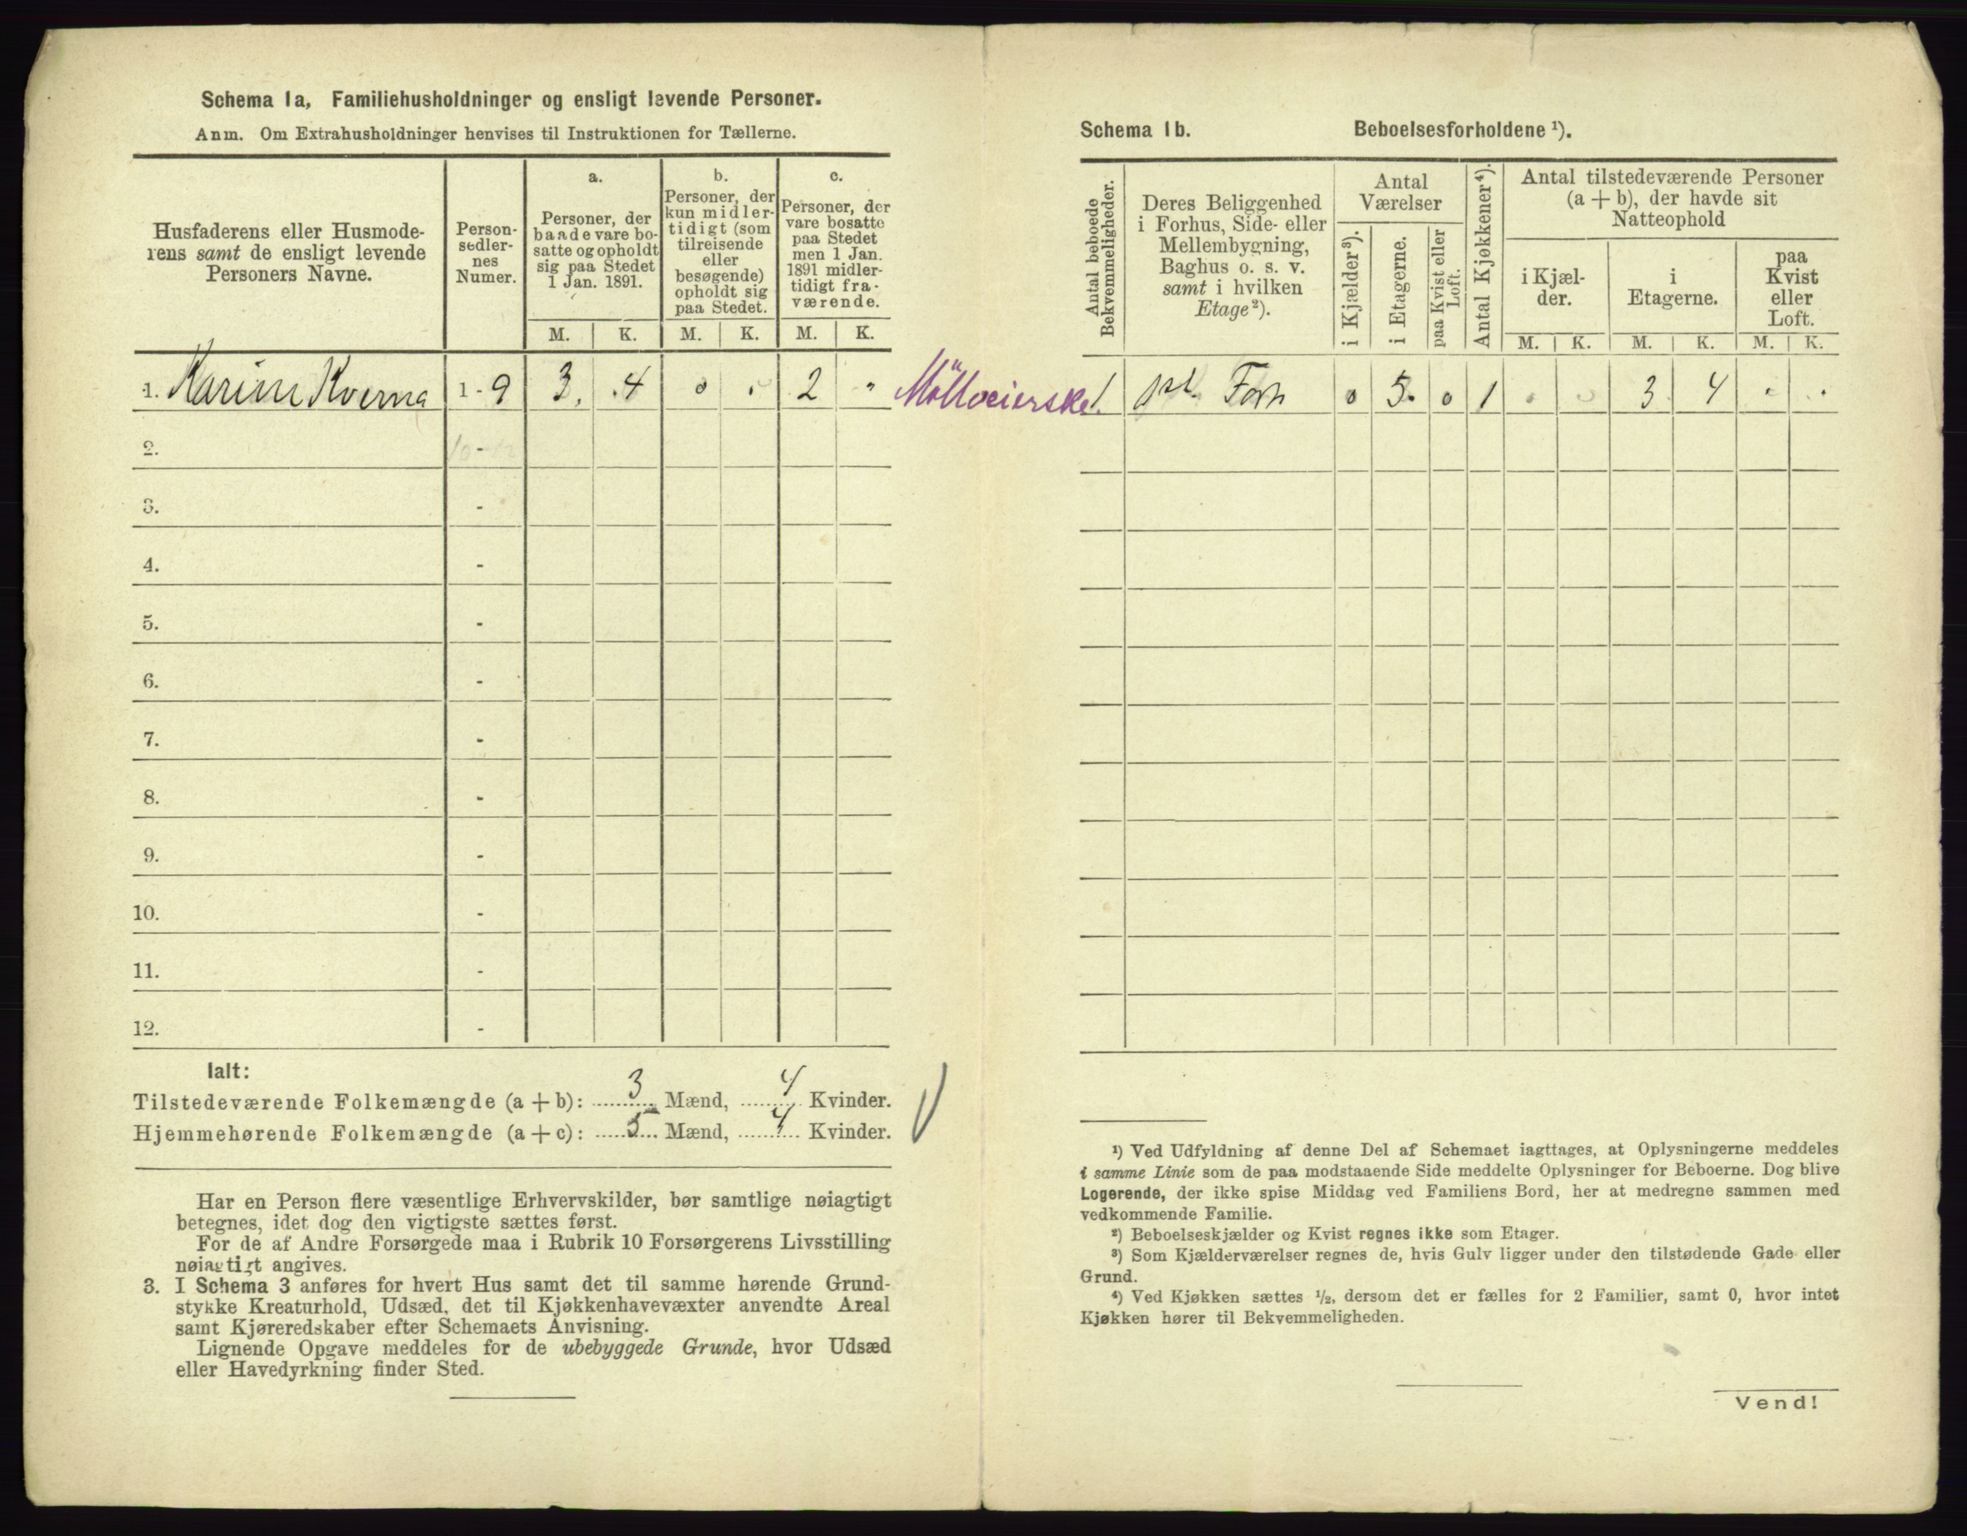 Schema 1a, Familiehusholdninger og ensligt levende Personer.
Anm. Om Extrahusholdninger henvises til Instruktionen for Tællerne.
Husfaderens eller Husmode-
rens samt de ensligt levende
Personers Navne.
Person-
sedler-
nes
Numer.
a.
Personer, der
baade vare bo-
satte og opholdt
sig paa Stedet
1 Jan. 1891.
b.
Personer, der
kun midler-
tidigt (som
tilreisende
eller
besøgende)
opholdt sig
paa Stedet.
c.
Personer, der
vare bosatte
paa Stedet
men 1 Jan.
1891 midler-
tidigt fra-
værende.
M. K. M. K. M. K.
1. Karine Kverna 1 - 9 3. .4 0 . 2 "
2. -
3. -
4. -
5. -
6. -
7. -
8. -
9. -
10. -
11. -
12. -
Ialt:
Tilstedeværende Folkemængde (a + b): 3 Mænd, 4 Kvinder.
Hjemmehørende Folkemængde (a + c): 5 Mænd, 4 Kvinder.
Har en Person flere væsentlige Erhvervskilder, bør samtlige nøiagtigt
betegnes, idet dog den vigtigste sættes først.
For de af Andre Forsørgede maa i Rubrik 10 Forsørgerens Livsstilling
nøiagtigt angives.
3. I Schema 3 anføres for hvert Hus samt det til samme hørende Grund-
stykke Kreaturhold, Udsæd, det til Kjøkkenhavevæxter anvendte Areal
samt Kjøreredskaber efter Schemaets Anvisning.
Lignende Opgave meddeles for de ubebyggede Grunde, hvor Udsæd
eller Havedyrkning finder Sted.
Schema 1b. Beboelsesforholdene ¹).
Antal beboede
Bekvemmeligheder.
Deres Beliggenhed
i Forhus, Side- eller
Mellembygning,
Baghus o. s. v.
samt i hvilken
Etage ²).
Antal
Værelser
i Kjælder ³).
i Etagerne.
paa Kvist eller
Loft.
Antal Kjøkkener ⁴).
Antal tilstedeværende Personer
(a + b), der havde sit
Natteophold
i Kjæl-
der.
i
Etagerne.
paa
Kvist
eller
Loft.
M. K. M. K. M. K.
Mölloeierske 1. Forh 0 5. 0 1 3 4
¹) Ved Udfyldning af denne Del af Schemaet iagttages, at Oplysningerne meddeles
i samme Linie som de paa modstaaende Side meddelte Oplysninger for Beboerne. Dog blive
Logerende, der ikke spise Middag ved Familiens Bord, her at medregne sammen med
vedkommende Familie.
²) Beboelseskjælder og Kvist regnes ikke som Etager.
³) Som Kjælderværelser regnes de, hvis Gulv ligger under den tilstødende Gade eller
Grund.
⁴) Ved Kjøkken sættes ½, dersom det er fælles for 2 Familier, samt 0, hvor intet
Kjøkken hører til Bekvemmeligheden.
Vend!